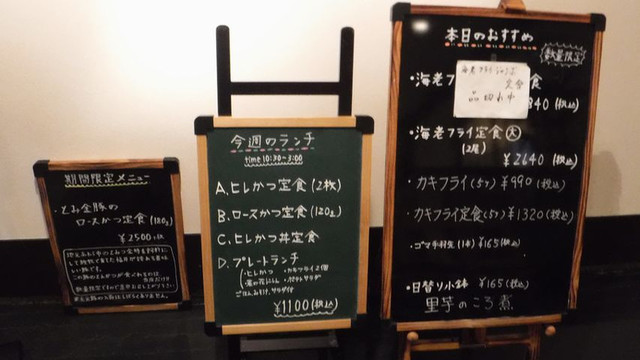 期間限定メニュー
・とみ金豚の
ロースかつ定食(180g)
¥2500
今週のランチ
time 10:30~3:00
A. ヒレかつ定食(2枚)
B. ロースかつ定食(120g)
C. ヒレかつ丼定食
D. プレートランチ
・ヒレかつ ・カキフライ2個
ごはんみそ汁サラダ付
¥1100(税込)
本日のおすすめ
数量限定
・海老フ
定食
品切れ中
840(税込)
・海老フライ定食(大)
(2尾)
¥2640(税込)
・カキフライ(5ケ)¥990(税込)
・カキフライ定食(5ケ)¥1320(税込)
・ゴマ手羽先(1本)¥165(税込)
・日替り小鉢 ¥165(税込)
里芋のころ煮